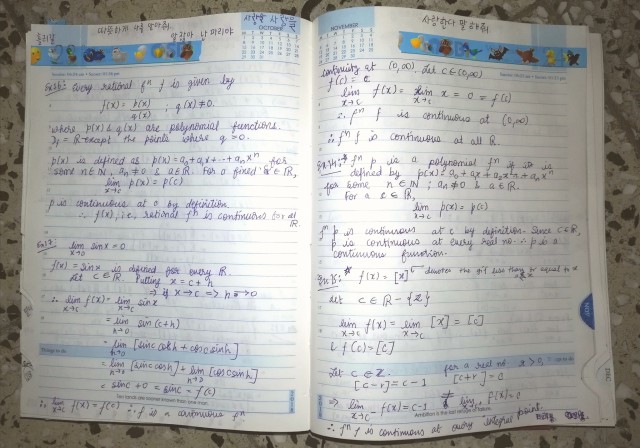 따뜻하게 나를 안아줘
사랑을
OCTOBER
Ex16: Every rational fⁿ f is given by
f(x) = p(x)/q(x) ; q(x) ≠ 0.
where p(x) & q(x) are polynomial functions.
Df = R except the points where q = 0.
p(x) is defined as p(x) = a₀ + a₁x + ... + aₙxⁿ for
some n ∈ N, aₙ ≠ 0 & a ∈ R. For a fixed c ∈ R,
lim x→c p(x) = p(c)
p is continuous at c by definition.
∴ f(x), i.e, rational fⁿ is continuous for all R.
Ex17: lim x→0 sinx = 0
f(x) = sinx is defined for every R.
Let c ∈ R. Putting x = c + h
⇒ if x → c ⇒ h → 0
∴ lim x→c f(x) = lim x→c sinx
= lim h→0 sin(c+h)
= lim h→0 [sinc cosh + cosc sinh]
= lim h→0 [sinc cosh] + lim h→0 [cosc sinh]
= sinc + 0 = sinc = f(c)
∴ lim x→c f(x) = f(c) ∴ f is a continuous fⁿ
사랑한다 말해줘
NOVEMBER
continuity at (0,∞). Let c ∈ (0,∞)
f(c) = c
lim x→c f(x) = lim x→c x = c = f(c)
∴ fⁿ f is continuous at (0,∞)
∴ fⁿ f is continuous at all R.
Ex14: fⁿ p is a polynomial fⁿ if it is
defined by p(x) = a₀ + a₁x + a₂x² + ... + aₙxⁿ
for some n ∈ N ; aₙ ≠ 0 & a ∈ R.
For a c ∈ R,
lim x→c p(x) = p(c)
fⁿ p is continuous at c by definition. Since c ∈ R,
p is continuous at every real no. ∴ p is a
continuous function.
f(x) = [x] denotes the gif less than or equal to x
Let c ∈ R - {Z}
lim x→c f(x) = lim x→c [x] = [c]
& f(c) = [c]
Let c ∈ Z. for a real no r > 0,
[c-r] = c-1 [c+r] = c
⇒ lim x→c f(x) = c-1 ≠ lim x→c f(x) = c
Ambition is the last refuge of failure.
∴ fⁿ f is continuous at every integral point.